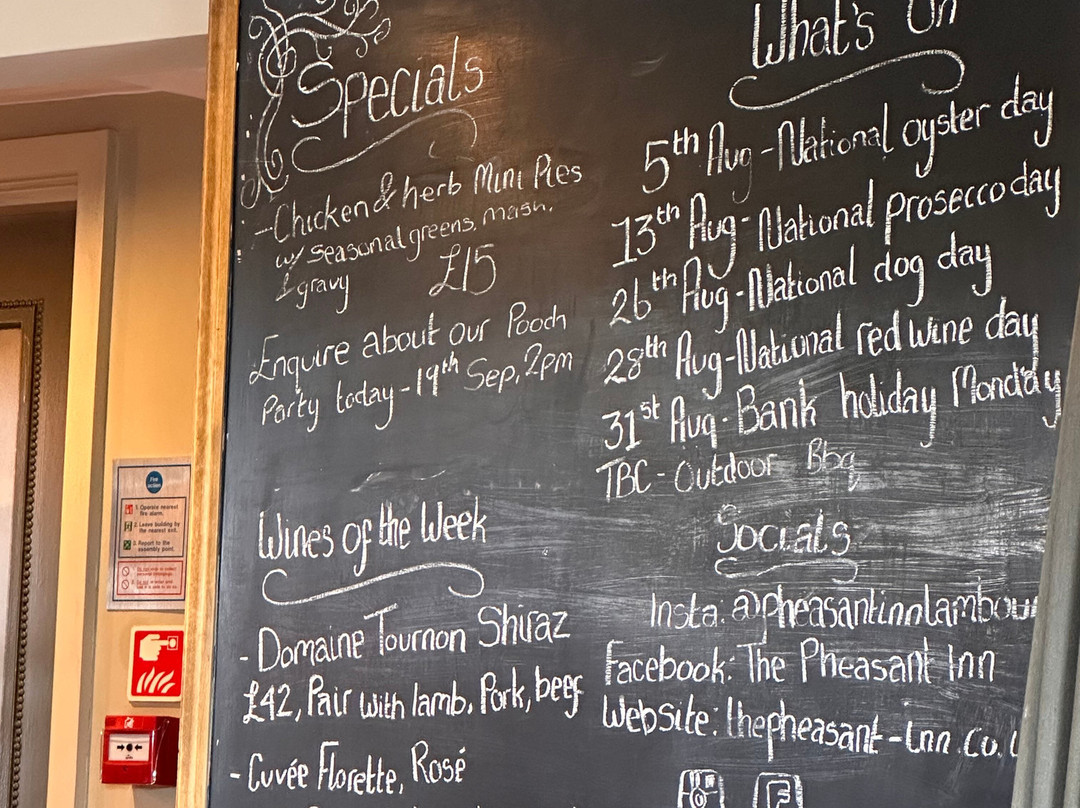 Specials
-Chicken & herb Mini Pies
w/ seasonal greens, mash,
& gravy £15
Enquire about our Pooch
Party today - 19th Sep, 2pm
Wines of the Week
- Domaine Tournon Shiraz
£42, Pair with lamb, Pork, beef
- Cuvée Florette, Rosé
What's On
5th Aug - National oyster day
13th Aug - National prosecco day
26th Aug - National dog day
28th Aug - National red wine day
31st Aug - Bank holiday Monday
TBC - Outdoor Bbq
Socials
Insta: @pheasantinnlambour
Facebook: The Pheasant Inn
Website: thepheasant-inn.co.
Fire
action
1. Operate nearest
fire alarm.
2. Leave building by
the nearest exit.
3. Report to the
assembly point.